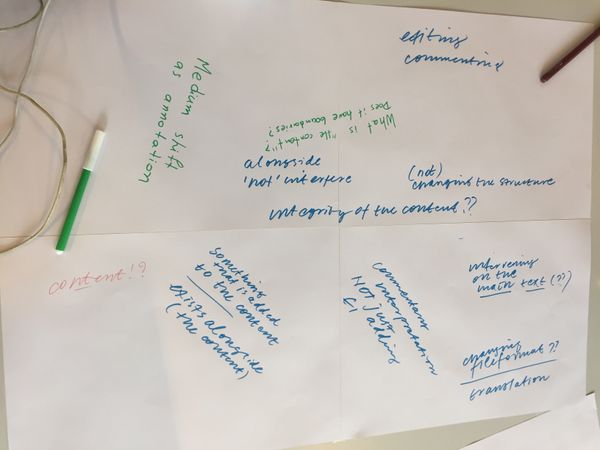 editing
commenting
Medium shift
as annotation
What is "the content"?
Does it have boundaries?
alongside
'not' interfere
(not)
changing the structure
integrity of the content??
content!?
something
that is added
to the content
exists alongside
(the content)
commentary
interpretation
NOT just
adding
intervening
on the
main text (??)
changing
fileformat??
translation